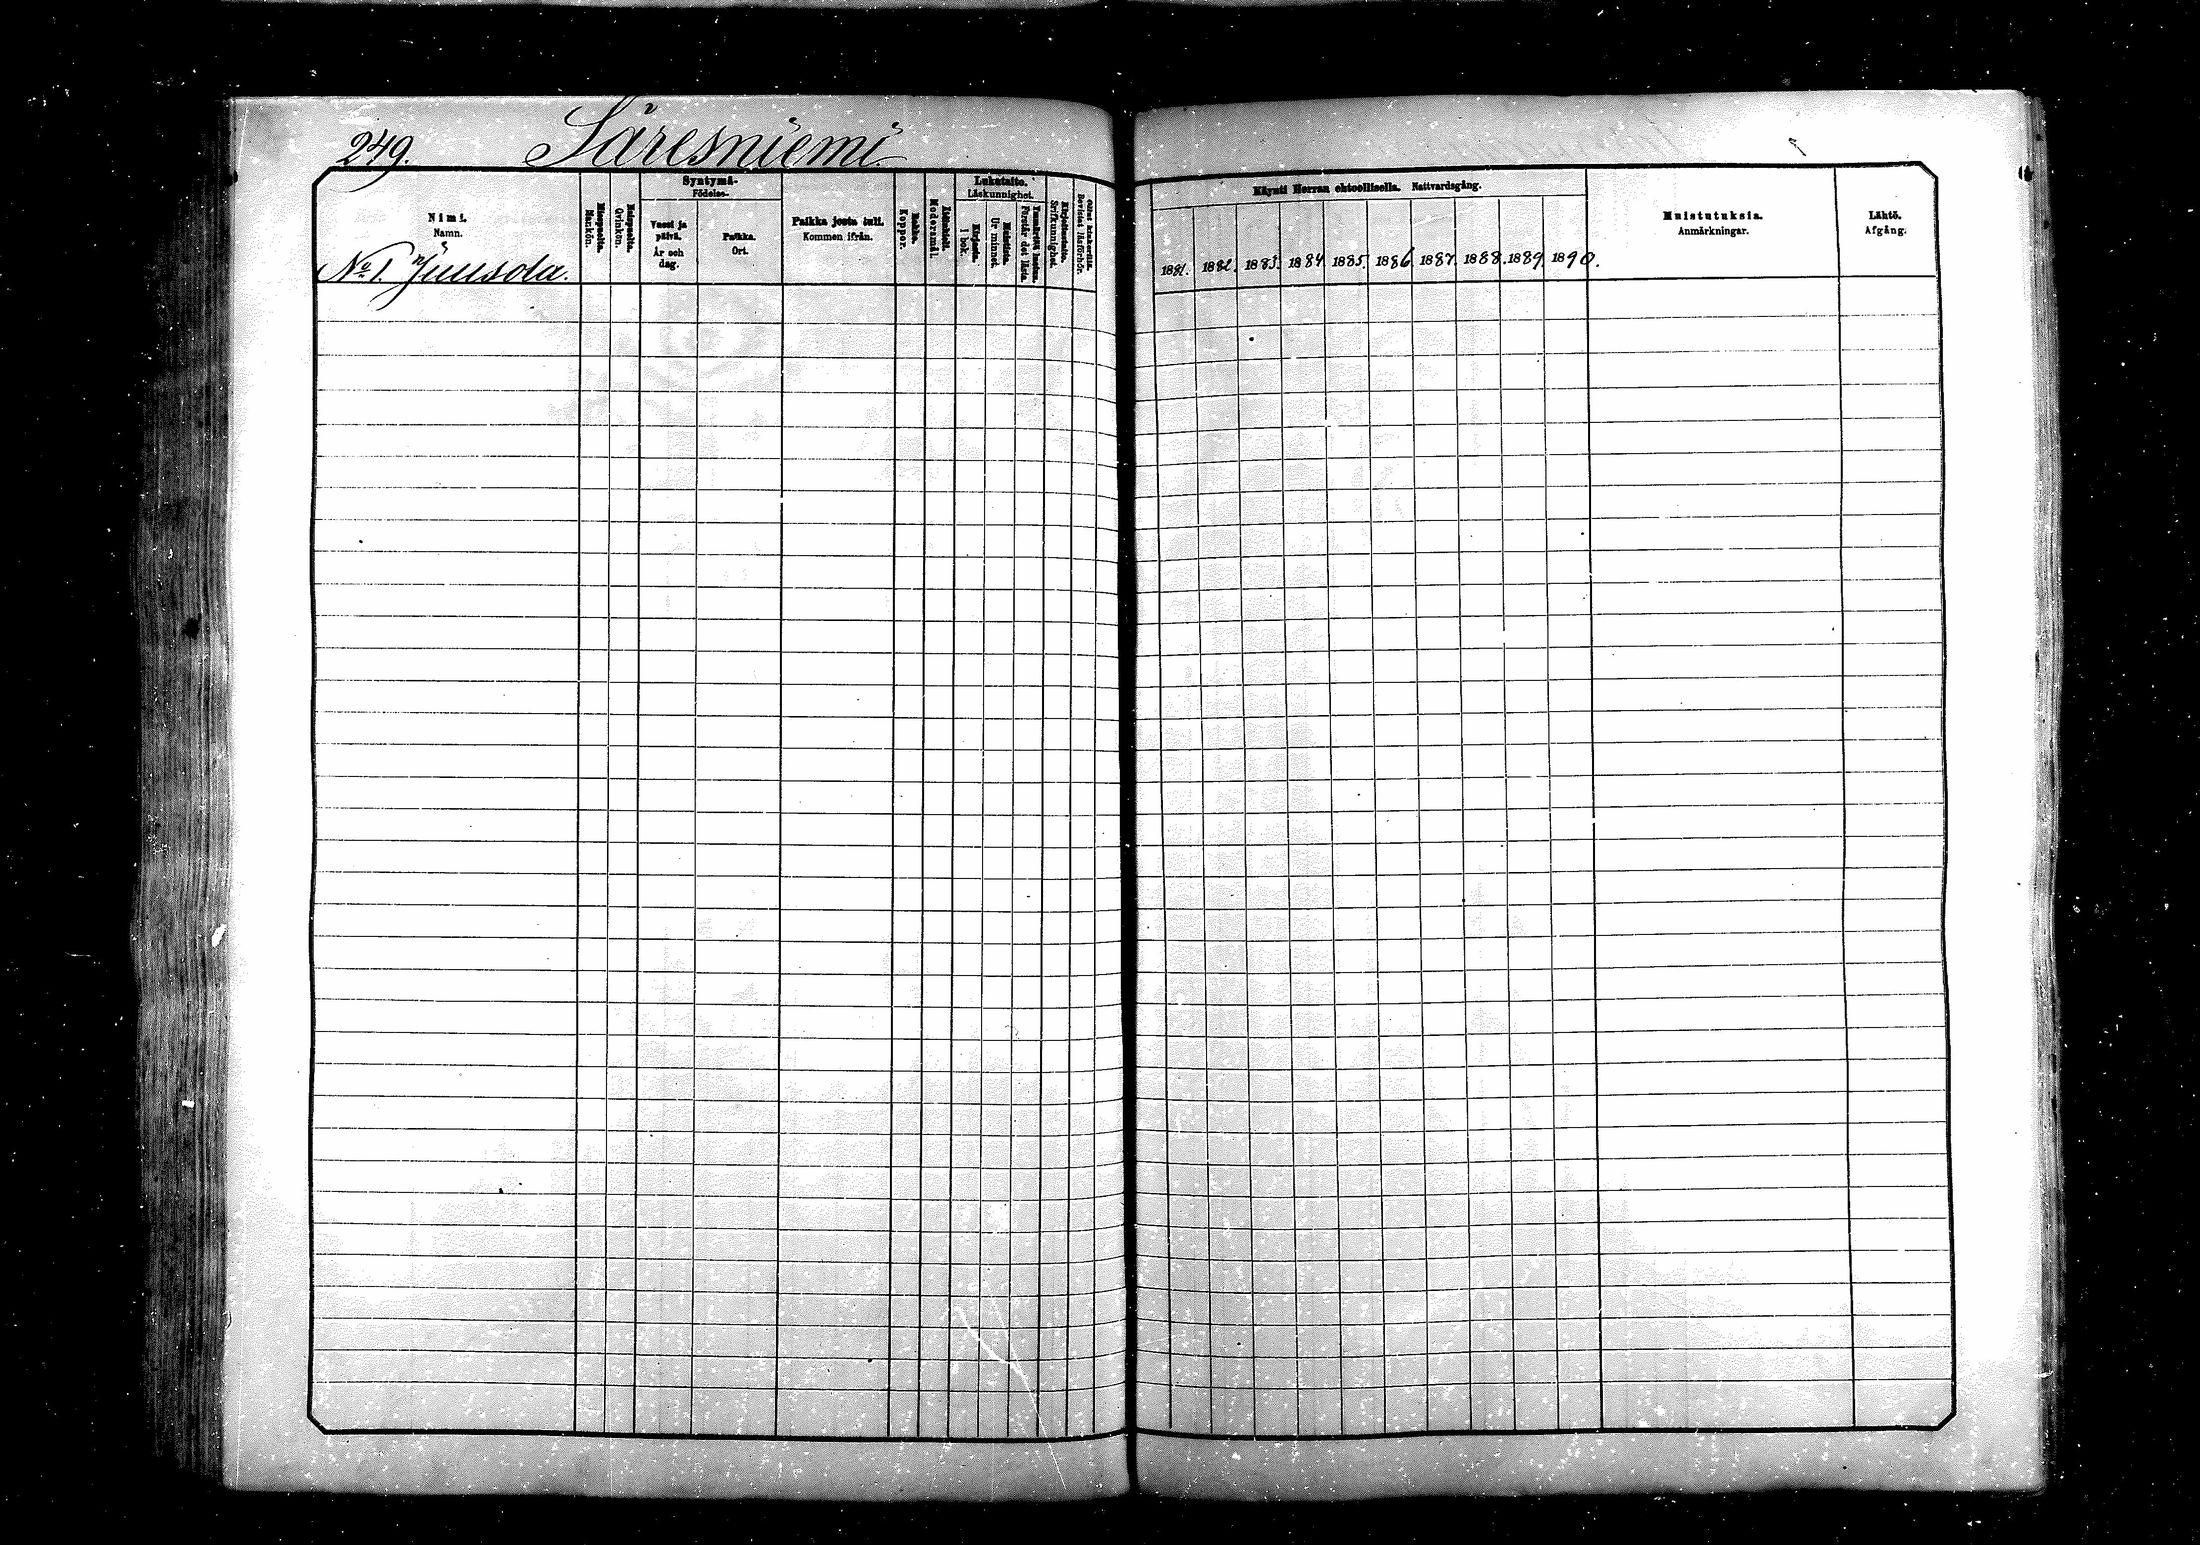 249. Säresniemi
Nimi.
Namn.
No 1. Juusola.
Miespuolta.
Mankön.
Vaimopuolta.
Qvinkön.
Syntymä-
Födelse-
Vuosi ja päivä.
År och dag.
Paikka.
Ort.
Paikka josta tuli.
Kommen ifrån.
Rokko.
Koppor.
Moderamål.
Lukutaito.
Läskunnighet.
Kirjasta.
I bok.
Ulkomuistista.
Ur minnet.
Förstår det lästa.
Kirjoitustaito.
Skrifkunnighet.
Bevistat läsförhör.
Käynti Herran ehtoollisella. Nattvardsgång.
1881. 1882. 1883. 1884. 1885. 1886. 1887. 1888. 1889. 1890.
Muistutuksia.
Anmärkningar.
Lähtö.
Afgång.